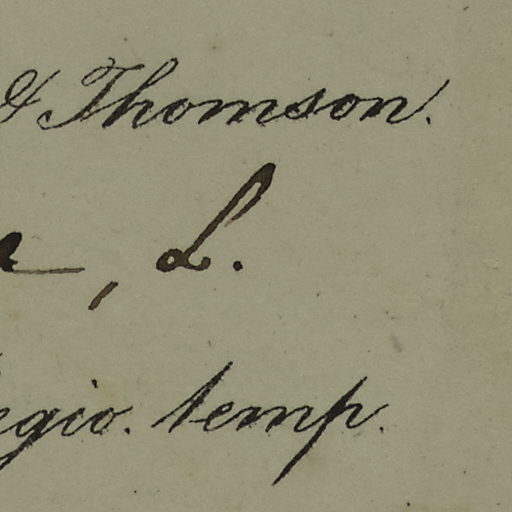 & Thomson.
, L.
regio. temp.